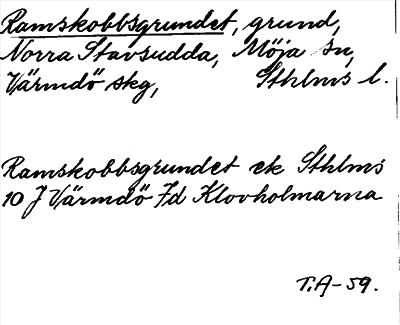 Ramskobbsgrundet, grund,
Norra Stavsudda, Möja sn,
Värmdö skg, Sthlms l.
Ramskobbsgrundet ek Sthlms
10 J Värmdö Fd Klovholmarna
T.A-59.